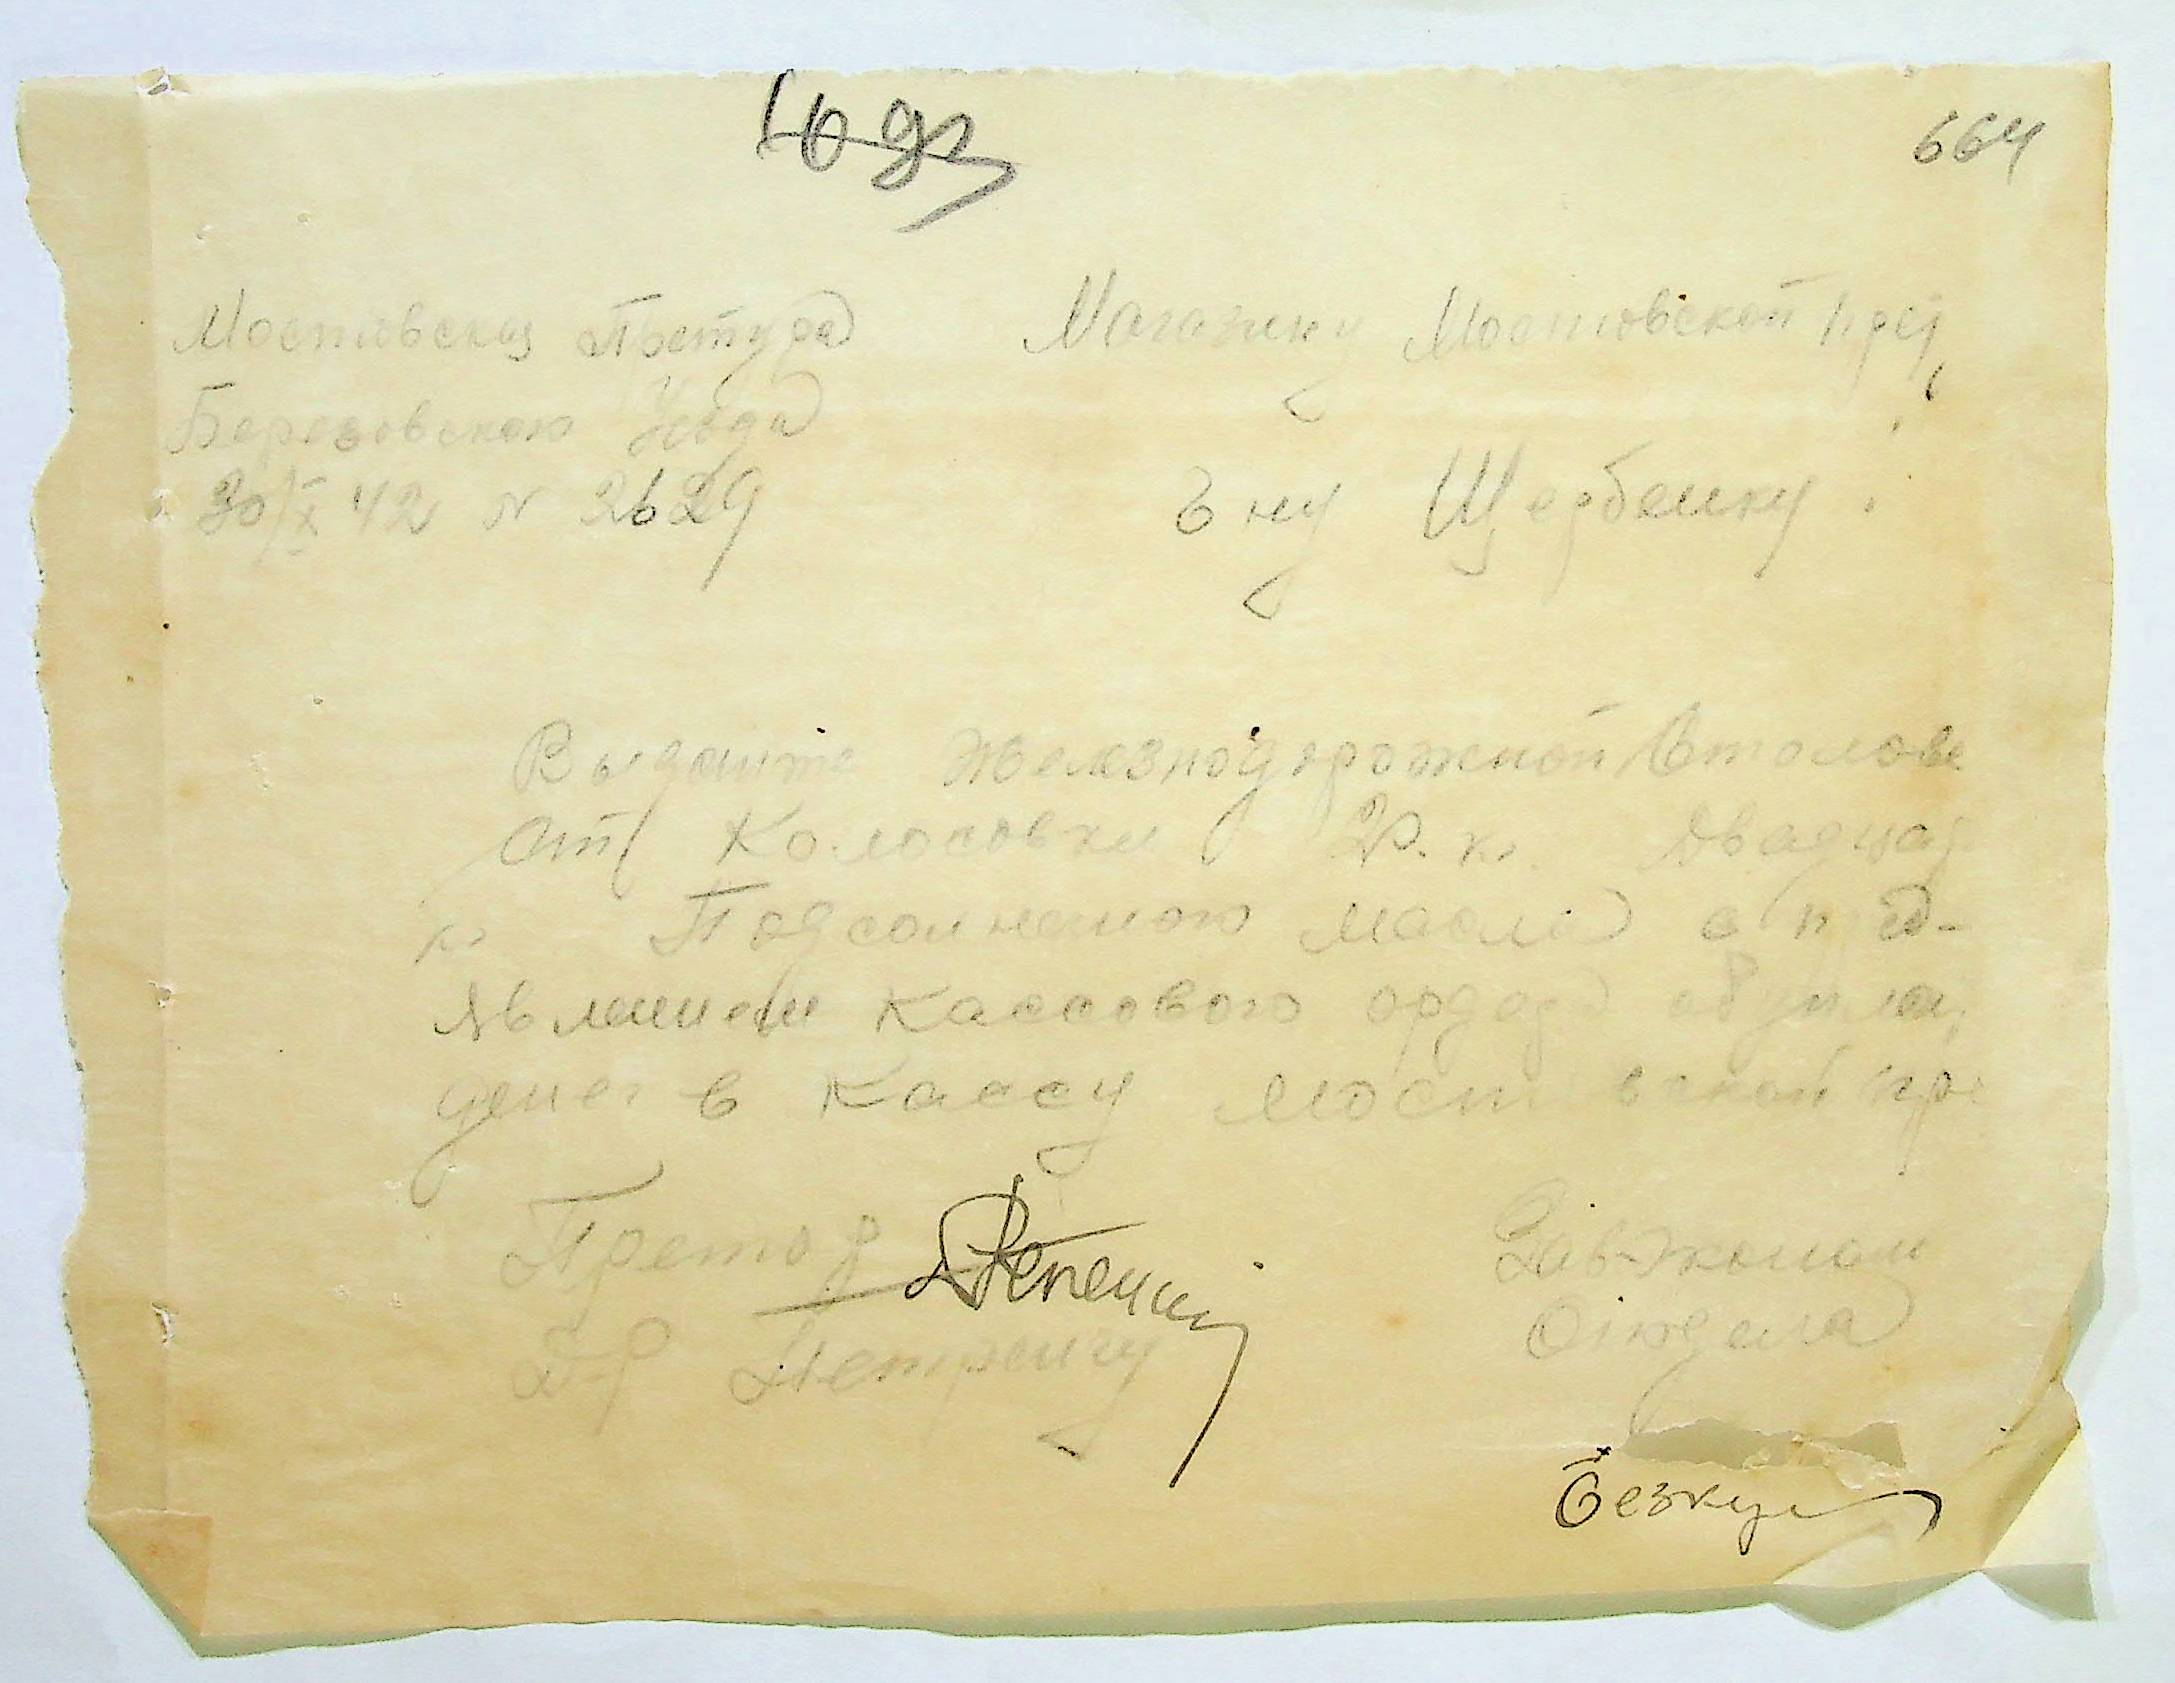 664
Мостовская Претура
Березовского Уезда
30/IX 42 N 2629
Магазину Мостовской прет
Г ну Щербенку
Выдайте Железнодорожной Столово
ст Колосовки 20 кг. двадцат
кг Подсолнечного масла с пред-
явлением кассового ордера
денег в кассу Мостовской пре
Претор
Д-р Петренчу
Зав-Эконом
Отдела
Безкул